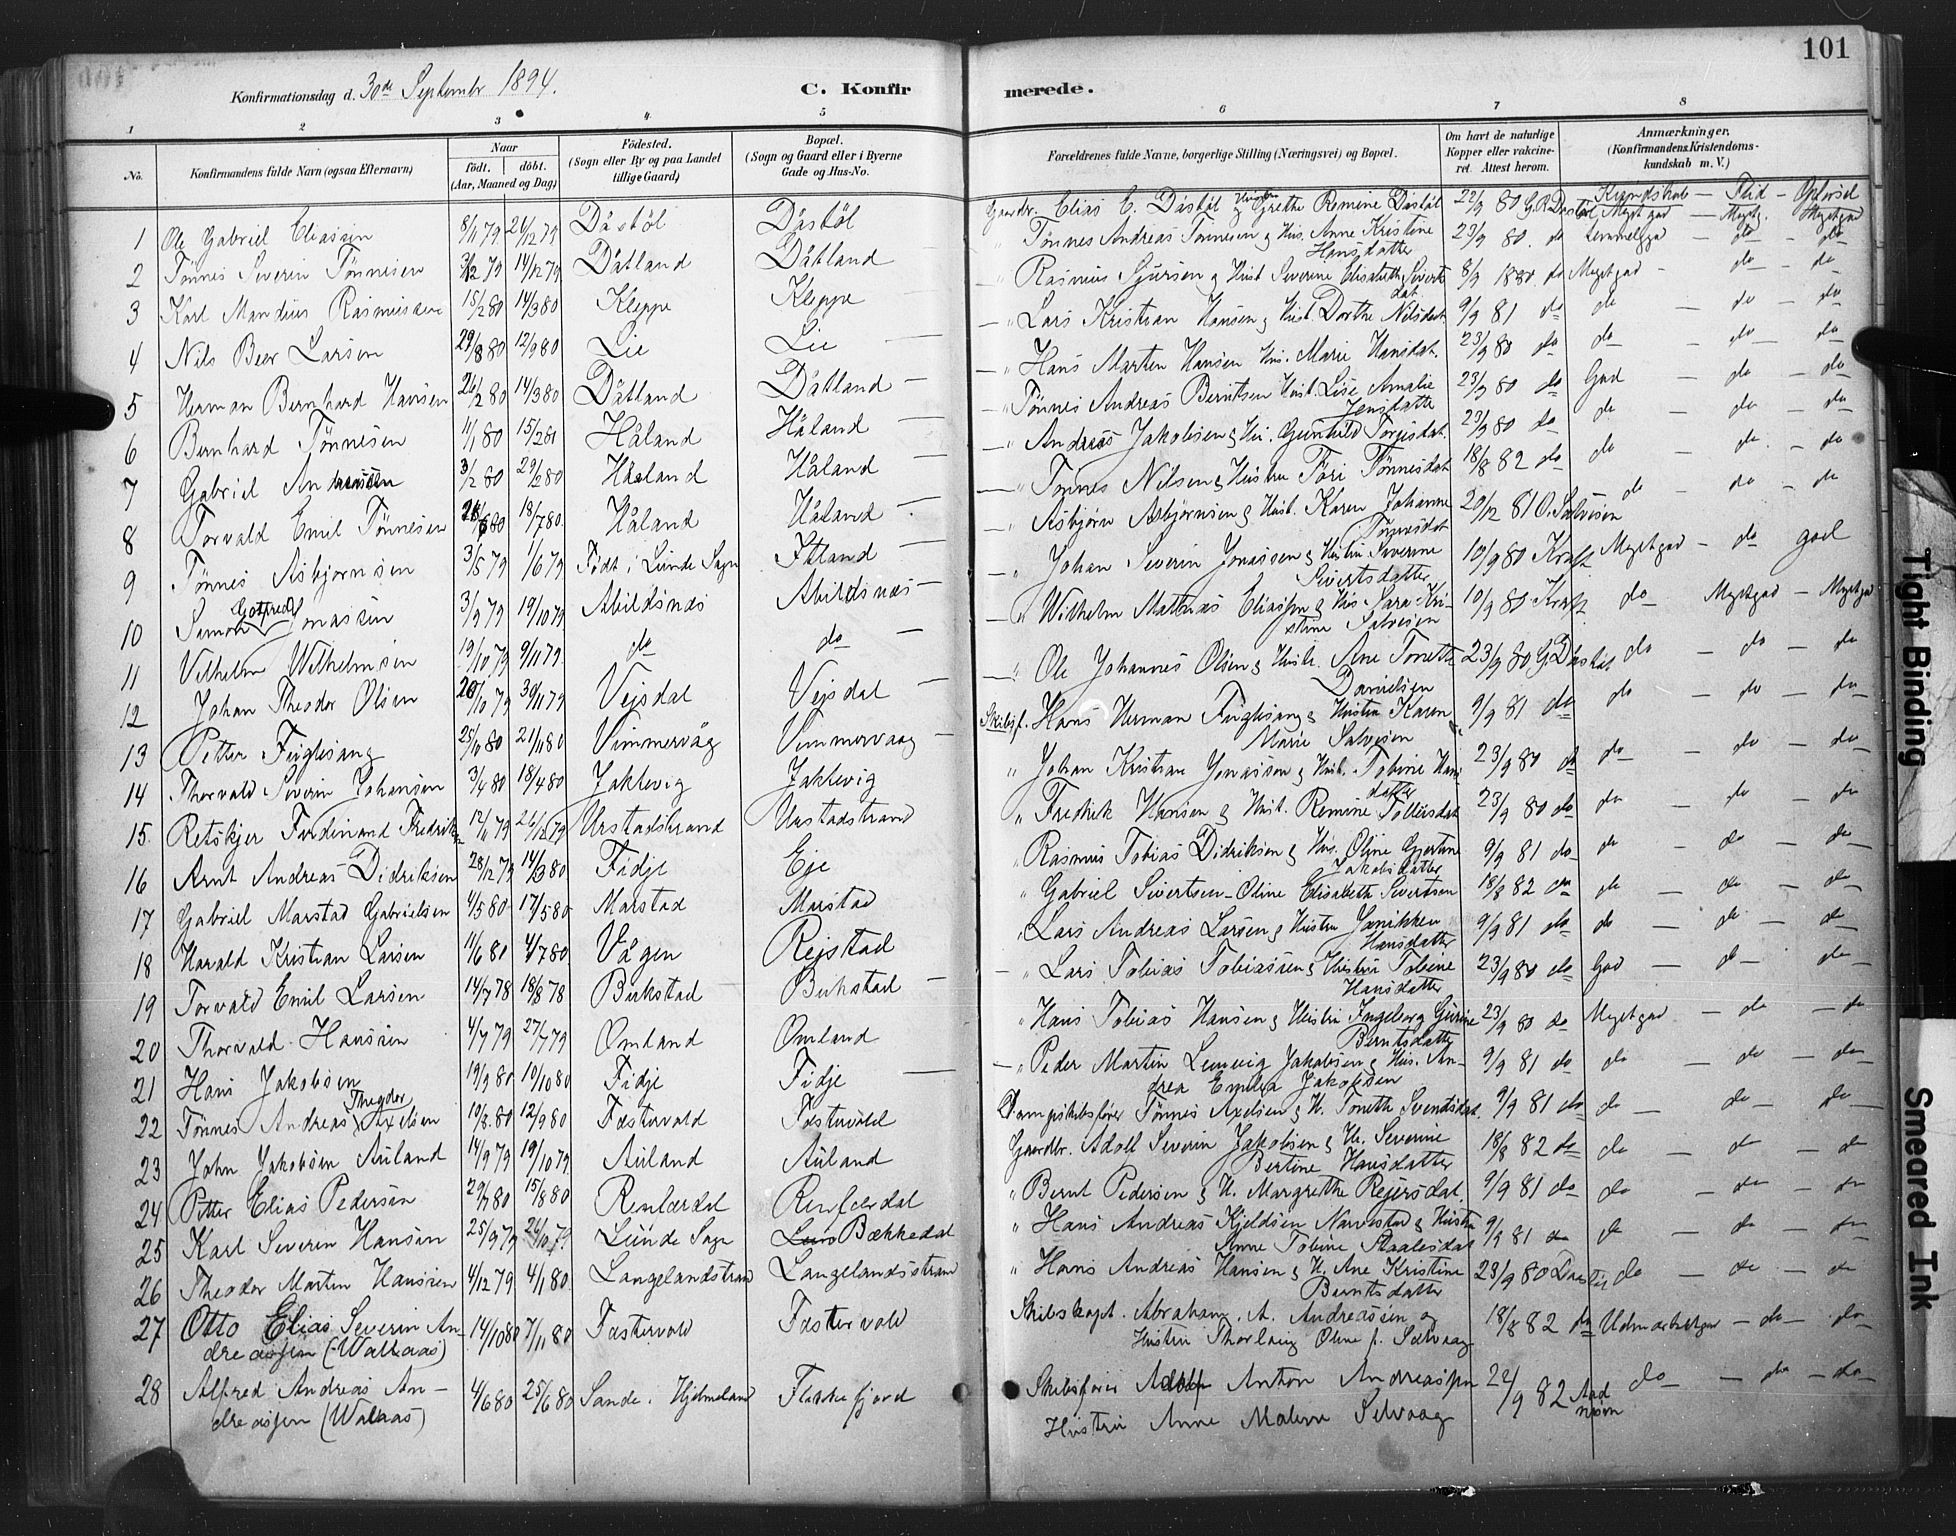 101
Konfirmationsdag d. 30de September 1894.
C. Konfirmerede.
1 2 3 4 5 6 7 8
No.
Konfirmandens fulde Navn (ogsaa Efternavn)
Naar
født. døbt.
(Aar, Maaned og Dag)
Fødested.
(Sogn eller By og paa Landet tillige Gaard)
Bopæl.
(Sogn og Gaard eller i Byerne Gade og Hus-No.
Forældrenes fulde Navne, borgerlige Stilling (Næringsvei) og Bopæl.
Om havt de naturlige Kopper eller vakcineret. Attest herom.
Anmærkninger.
(Konfirmandens Kristendomskundskab m. V.)
Kundskab — Flid — Opførsel
1 Ole Gabriel Eliassen 8/11 79 26/12 79 Dåstøl Dåstøl Gaardbr. Elias E. Dåstøl Hustru Grethe Remine Dåstøl 22/9 80 G.R. Dåstøl Meget god — Meget — Meget god
2 Tønnes Severin Tønnesen 3/12 79 14/12 79 Dåtland Dåtland Tønnes Andreas Tønnesen & Hus. Anne Kristine Hansdatter 23/9 80 do — do — do
3 Karl Mandius Rasmussen 15/2 80 14/3 80 Kleppe Kleppe Rasmus Sjursen & Hust. Severine Elisabeth Siverts dat. 8/9 1880 do Meget god — do — do
4 Nils Beer Larsen 29/8 80 12/9 80 Lie Lie Lars Kristian Hansen & Hust. Dorthe Nilsdat. 9/9 81 do do — do — do
5 Herman Bernhard Hansen 26/2 80 14/3 80 Dåtland Dåtland Hans Marten Hansen Hus. Marie Hansdat. 23/9 80 do do — do — do
6 Bernhard Tønnesen 11/1 80 15/2 80 Håland Håland Tønnes Andreas Berntsen Hust. Lise Amalie Jensdatter 23/9 80 do God — do — do
7 Gabriel Andreassen 3/2 80 29/2 80 Håland Håland Andreas Jakobsen & Hu. Gunhild Torgisdat. 23/9 80 do do — do — do
8 Torvald Emil Tønnesen 18/7 80 Håland Håland Tønnes Nilsen & Hustru Tøri Tønnesdat 18/8 82 do do — do — do
9 Tønnes Asbjørnsen 3/5 79 1/6 79 Født i Lunde Sogn Itland Asbjørn Asbjørnsen & Hust. Karen Johanne Tønnesdat 20/12 81 O. Salvesen do — do — do
10 Simon Gotfred Jonassen 3/9 79 19/10 79 Abildsnæs Abildsnæs Johan Severin Jonassen & Hustru Severine Sivertsdatter 10/9 80 Kraft Meget god — do god
11 Vilhelm Wilhelmsen 19/10 79 9/11 79 do do Wilhelm Mathias Eliassen & Hus Sara Kristine Salvesen 10/9 80 Kraft do Meget god — Meget god
12 Johan Theodor Olsen 30/11 79 Vejsdal Vejsdal Ole Johannes Olsen & Hustr. Ane Tonette Danielsen 23/9 80 G. Dåstøl do — do — do
13 Petter Fuglesang 25/10 80 21/11 80 Vimmervåg Vimmervaag Skibsf. Hans Herman Fuglesang & Hustru Karen Marie Salvesen 9/9 81 do do — do — do
14 Thorvald Severin Johansen 3/4 80 18/4 80 Jaktevig Jaktevig Johan Kristian Jonassen & Hust. Tobine Hansdatter 23/9 80 do do — do — do
15. Retskjer Ferdinand Fredriksen 12/11 79 26/12 79 Urstadstrand Urstadstrand Fredrik Hansen & Hust. Remine Tollersdat. 23/9 80 do do — do — do
16 Arnt Andreas Didriksen 28/12 79 14/3 80 Fidje Eje Rasmus Tobias Didriksen & Hus. Oline Gjertine Jakobsdatter 9/9 81 do do — do — do
17 Gabriel Marstad Gabrielsen 4/5 80 17/5 80 Marstad Marstad Gabriel Sivertsen - Oline Elisabeth Sivertsen 18/8 82 do do — do — do
18 Harald Kristian Larsen 11/6 80 4/7 80 Vågen Rejstad Lars Andreas Larsen & Hustru Janikken Hansdatter 9/9 81 do do — do — do
19 Torvald Emil Larsen 14/7 78 18/8 78 Bukstad Bukstad Lars Tobias Tobiassen & Hustru Tobine Hansdatter 23/9 80 do God — do — do
20 Thorvald Hansen 4/7 79 27/7 79 Omland Omland Hans Tobias Hansen & Hustru Ingeborg Gurine Berntsdatter 23/9 80 do Meget god — do — do
21 Hans Jakobsen 19/9 80 10/10 80 Fidje Fidje Peder Martin Lemvig Jakobsen & Hus. Andrea Emilia Jakobsen 9/9 81 do do — do — do
22 Tønnes Andreas Theodor Axelsen 19/8 80 12/9 80 Fæstervold Fæstervold Dampskibsfører Tønnes Axelsen & H. Tonette Svendsdat. 9/9 81 do do — do — do
23 John Jakobsen Auland 14/9 79 19/10 79 Auland Auland Gaardbr. Adolf Severin Jakobsen & Hu. Severine Bertine Hansdatter 18/8 82 do do — do — do
24 Petter Elias Pedersen 29/7 80 15/8 80 Renlærdal Renlærdal Bernt Pedersen & H. Margrethe Rejersdat. 9/9 81 do do — do — do
25 Karl Severin Hansen 25/9 79 26/10 79 Lunde Sogn Bækkedal Hans Andreas Kjeldsen Narvestad & Hustru Anne Tobine Staalesdat 9/9 81 do do — do — do
26 Theodor Martin Hansen 4/12 79 4/1 80 Langelandstrand Langelandsstrand Hans Andreas Hansen & H. Ane Kristine Berntsdatter 23/9 80 Dåstøl do — do — do
27 Otto Elias Severin Andreasjen (Walkaas) 14/10 80 7/11 80 Fæstervold Fæstervold Skibskapt. Abraham A. Andreassen og Hustru Thorlaug Oline f. Sælvaag 18/8 82 do Udmærket god — do — do
28 Alfred Andreas Andreasjen (Walaas) 4/6 80 25/6 80 Sande i Hjelmeland Flikkefjord Skibsfører Adolf Anton Andreassen Hustru Anne Malene Selvaag 22/9 82 Aadnesen do — do — do
Tight Binding
Smeared Ink